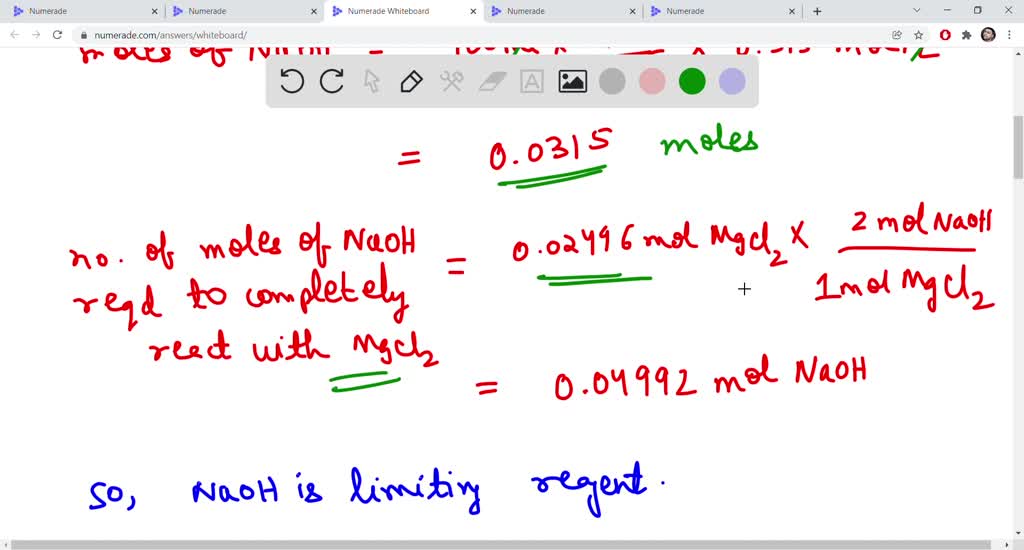 Numerade
Numerade
Numerade Whiteboard
Numerade
Numerade
numerade.com/answers/whiteboard/
moles of
= 0.0315 moles
no. of moles of NaOH
reqd to completely
react with MgCl2
= 0.02496 mol MgCl2 X 2 mol NaOH
1 mol MgCl2
= 0.04992 mol NaOH
So, NaOH is limiting regent.